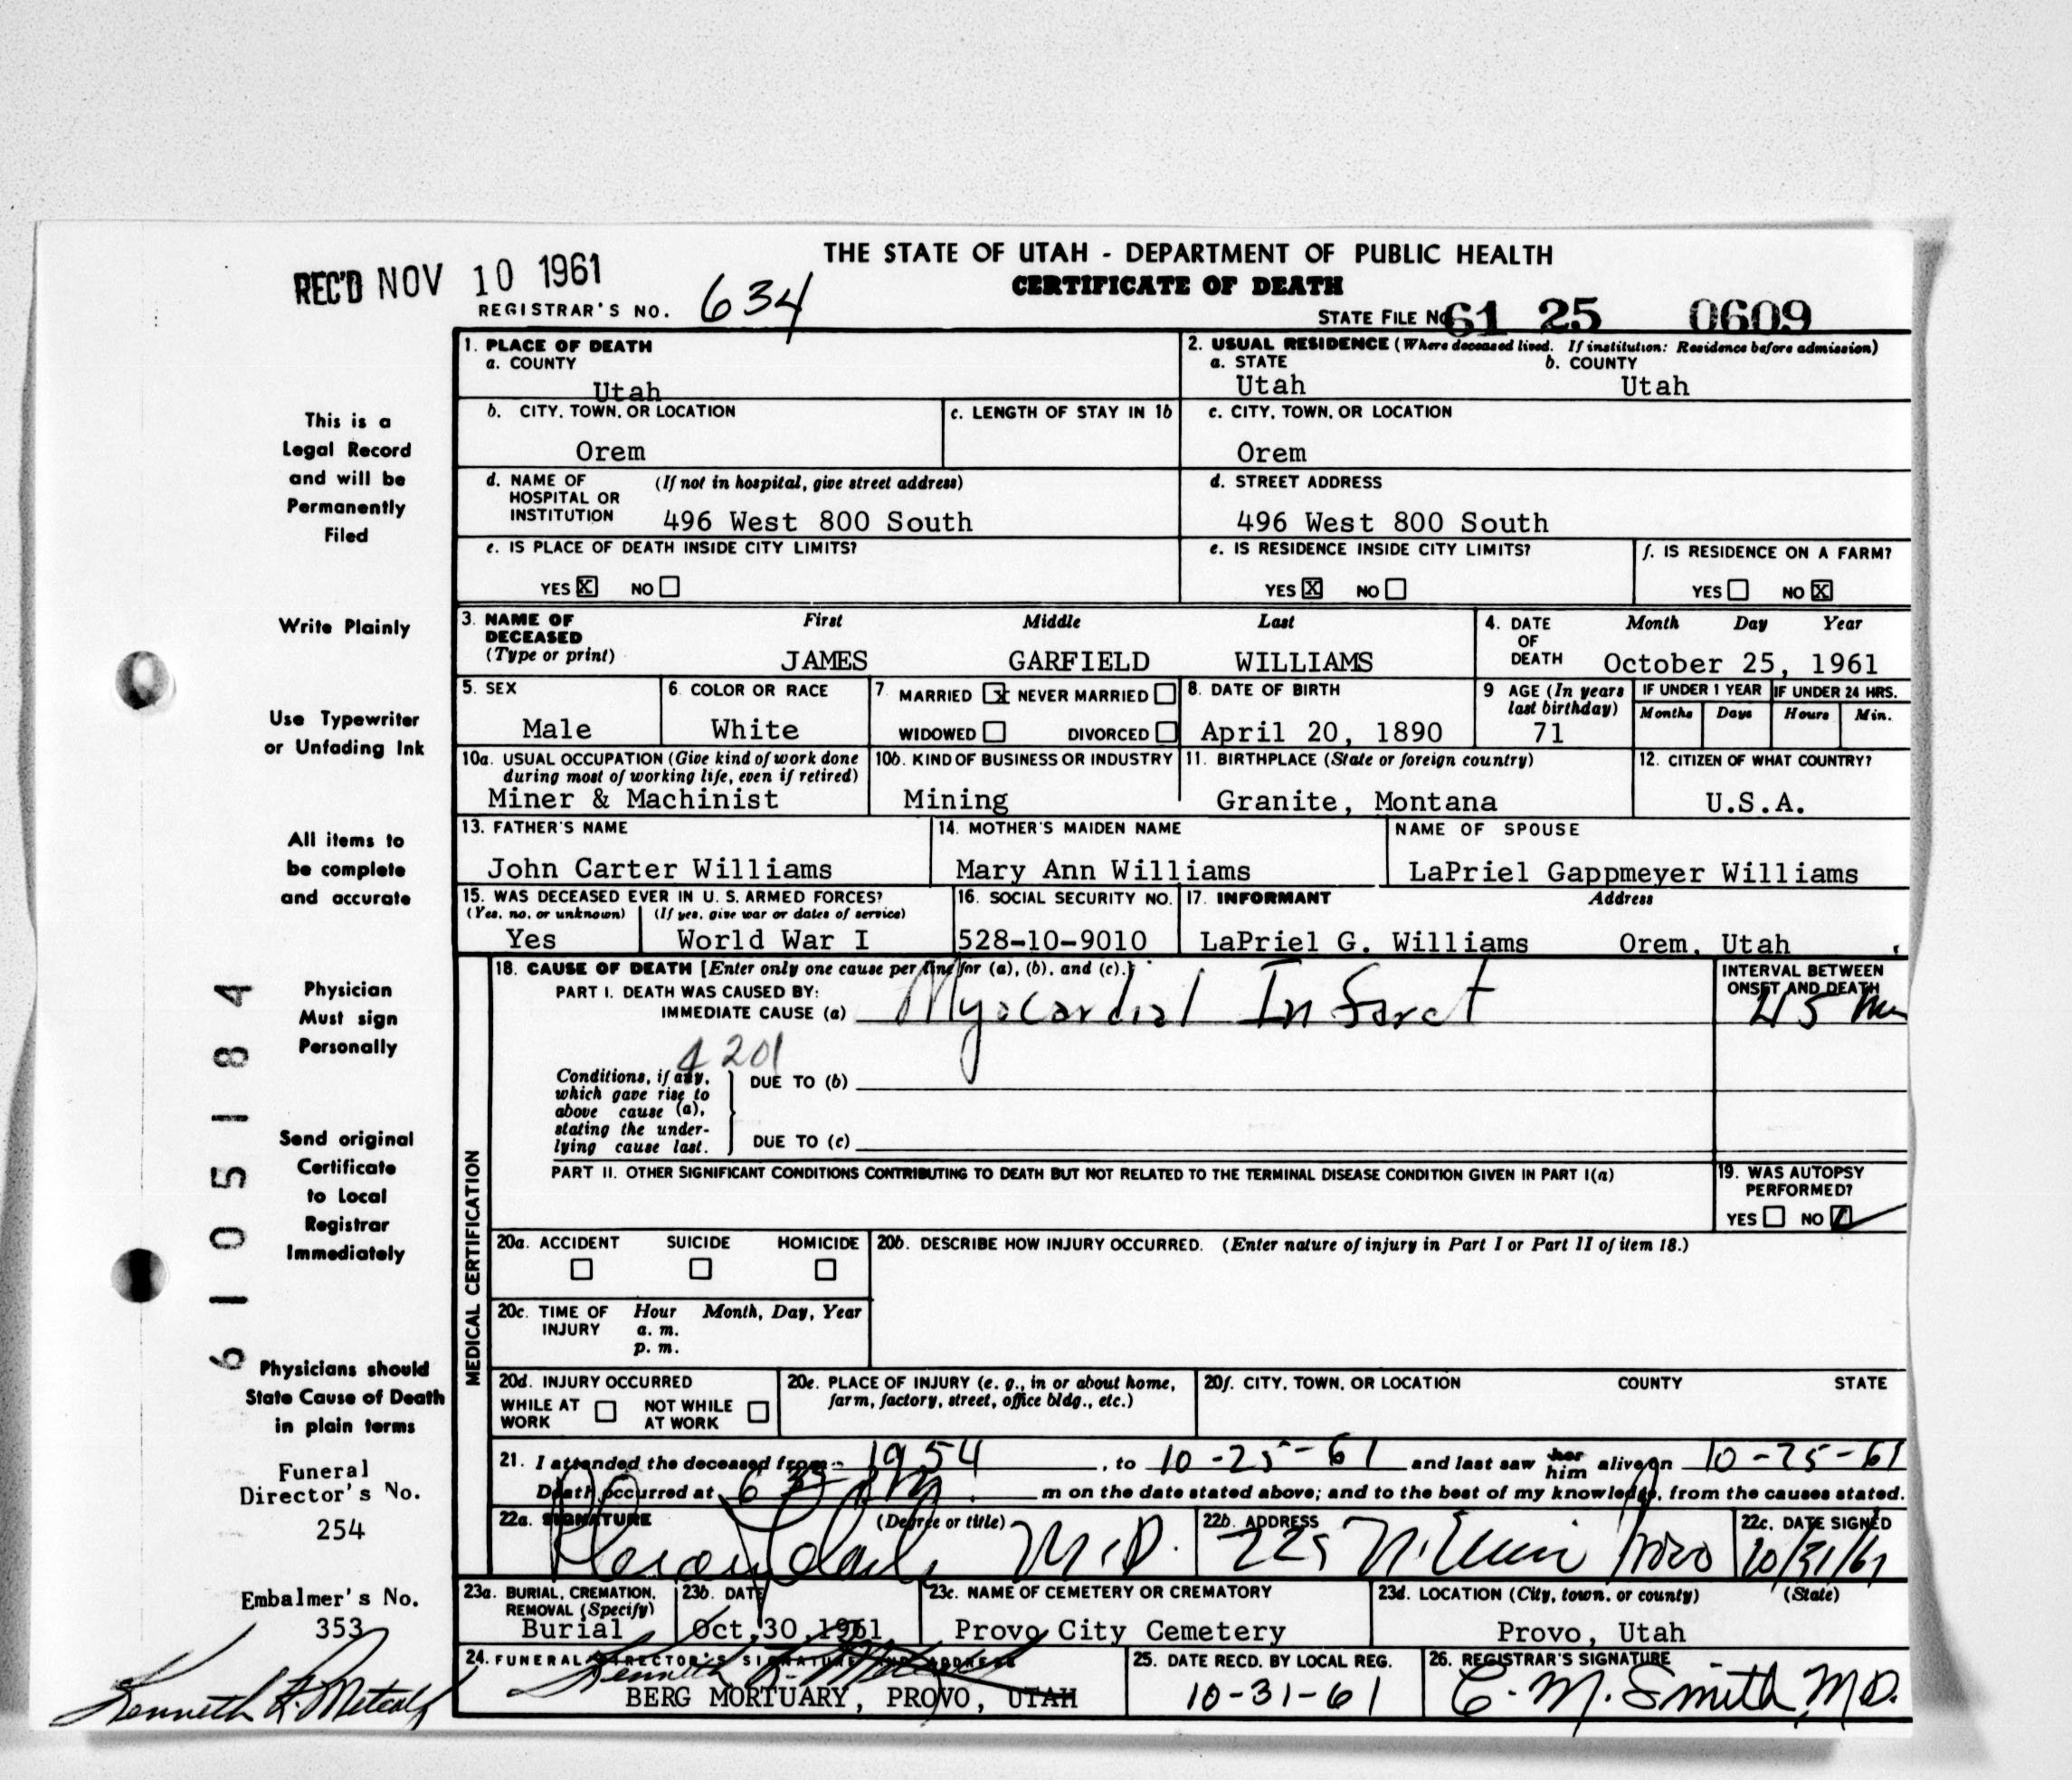 THE STATE OF UTAH - DEPARTMENT OF PUBLIC HEALTH
CERTIFICATE OF DEATH
REC'D NOV 10 1961
REGISTRAR'S NO. 634
STATE FILE NO. 61 25 0609
1. PLACE OF DEATH
a. COUNTY
Utah
2. USUAL RESIDENCE (Where deceased lived. If institution: Residence before admission)
a. STATE b. COUNTY
Utah Utah
b. CITY, TOWN, OR LOCATION
Orem
c. LENGTH OF STAY IN 1b
c. CITY, TOWN, OR LOCATION
Orem
d. NAME OF HOSPITAL OR INSTITUTION (If not in hospital, give street address)
496 West 800 South
d. STREET ADDRESS
496 West 800 South
e. IS PLACE OF DEATH INSIDE CITY LIMITS?
YES X NO
e. IS RESIDENCE INSIDE CITY LIMITS?
YES X NO
f. IS RESIDENCE ON A FARM?
YES NO X
3. NAME OF DECEASED (Type or print) First Middle Last
JAMES GARFIELD WILLIAMS
4. DATE OF DEATH Month Day Year
October 25, 1961
5. SEX
Male
6. COLOR OR RACE
White
7. MARRIED X NEVER MARRIED
WIDOWED DIVORCED
8. DATE OF BIRTH
April 20, 1890
9 AGE (In years last birthday)
71
IF UNDER 1 YEAR IF UNDER 24 HRS.
Months Days Hours Min.
10a. USUAL OCCUPATION (Give kind of work done during most of working life, even if retired)
Miner & Machinist
10b. KIND OF BUSINESS OR INDUSTRY
Mining
11. BIRTHPLACE (State or foreign country)
Granite, Montana
12. CITIZEN OF WHAT COUNTRY?
U.S.A.
13. FATHER'S NAME
John Carter Williams
14. MOTHER'S MAIDEN NAME
Mary Ann Williams
NAME OF SPOUSE
LaPriel Gappmeyer Williams
15. WAS DECEASED EVER IN U. S. ARMED FORCES?
(Yes, no, or unknown) (If yes, give war or dates of service)
Yes World War I
16. SOCIAL SECURITY NO.
528-10-9010
17. INFORMANT Address
LaPriel G. Williams Orem, Utah
MEDICAL CERTIFICATION
18. CAUSE OF DEATH [Enter only one cause per line for (a), (b), and (c).]
PART I. DEATH WAS CAUSED BY:
IMMEDIATE CAUSE (a) Myocardial Infarct
INTERVAL BETWEEN ONSET AND DEATH
45
4201
Conditions, if any, which gave rise to above cause (a), stating the underlying cause last.
DUE TO (b)
DUE TO (c)
PART II. OTHER SIGNIFICANT CONDITIONS CONTRIBUTING TO DEATH BUT NOT RELATED TO THE TERMINAL DISEASE CONDITION GIVEN IN PART I(a)
19. WAS AUTOPSY PERFORMED?
YES NO
20a. ACCIDENT SUICIDE HOMICIDE
20b. DESCRIBE HOW INJURY OCCURRED. (Enter nature of injury in Part I or Part II of item 18.)
20c. TIME OF INJURY Hour Month, Day, Year
a. m.
p. m.
20d. INJURY OCCURRED
WHILE AT WORK NOT WHILE AT WORK
20e. PLACE OF INJURY (e. g., in or about home, farm, factory, street, office bldg., etc.)
20f. CITY, TOWN, OR LOCATION COUNTY STATE
21. I attended the deceased from 1954, to 10-25-61 and last saw her him alive on 10-25-61
Death occurred at m on the date stated above; and to the best of my knowledge, from the causes stated.
22a. SIGNATURE (Degree or title)
M.D.
22b. ADDRESS
Provo
22c. DATE SIGNED
10/31/61
23a. BURIAL, CREMATION, REMOVAL (Specify)
Burial
23b. DATE
Oct.30,1961
23c. NAME OF CEMETERY OR CREMATORY
Provo City Cemetery
23d. LOCATION (City, town, or county) (State)
Provo, Utah
24. FUNERAL DIRECTOR'S SIGNATURE AND ADDRESS
BERG MORTUARY, PROVO, UTAH
25. DATE RECD. BY LOCAL REG.
10-31-61
26. REGISTRAR'S SIGNATURE
C. M. Smith, M.D.
This is a
Legal Record
and will be
Permanently
Filed
Write Plainly
Use Typewriter
or Unfading Ink
All items to
be complete
and accurate
Physician
Must sign
Personally
Send original
Certificate
to Local
Registrar
Immediately
Physicians should
State Cause of Death
in plain terms
Funeral
Director's No.
254
Embalmer's No.
353
Kenneth L. Metcalf
6105184